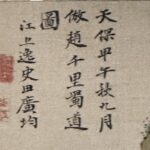 天保甲午秋九月
倣趙千里蜀道
圖
江上逸史田廣均